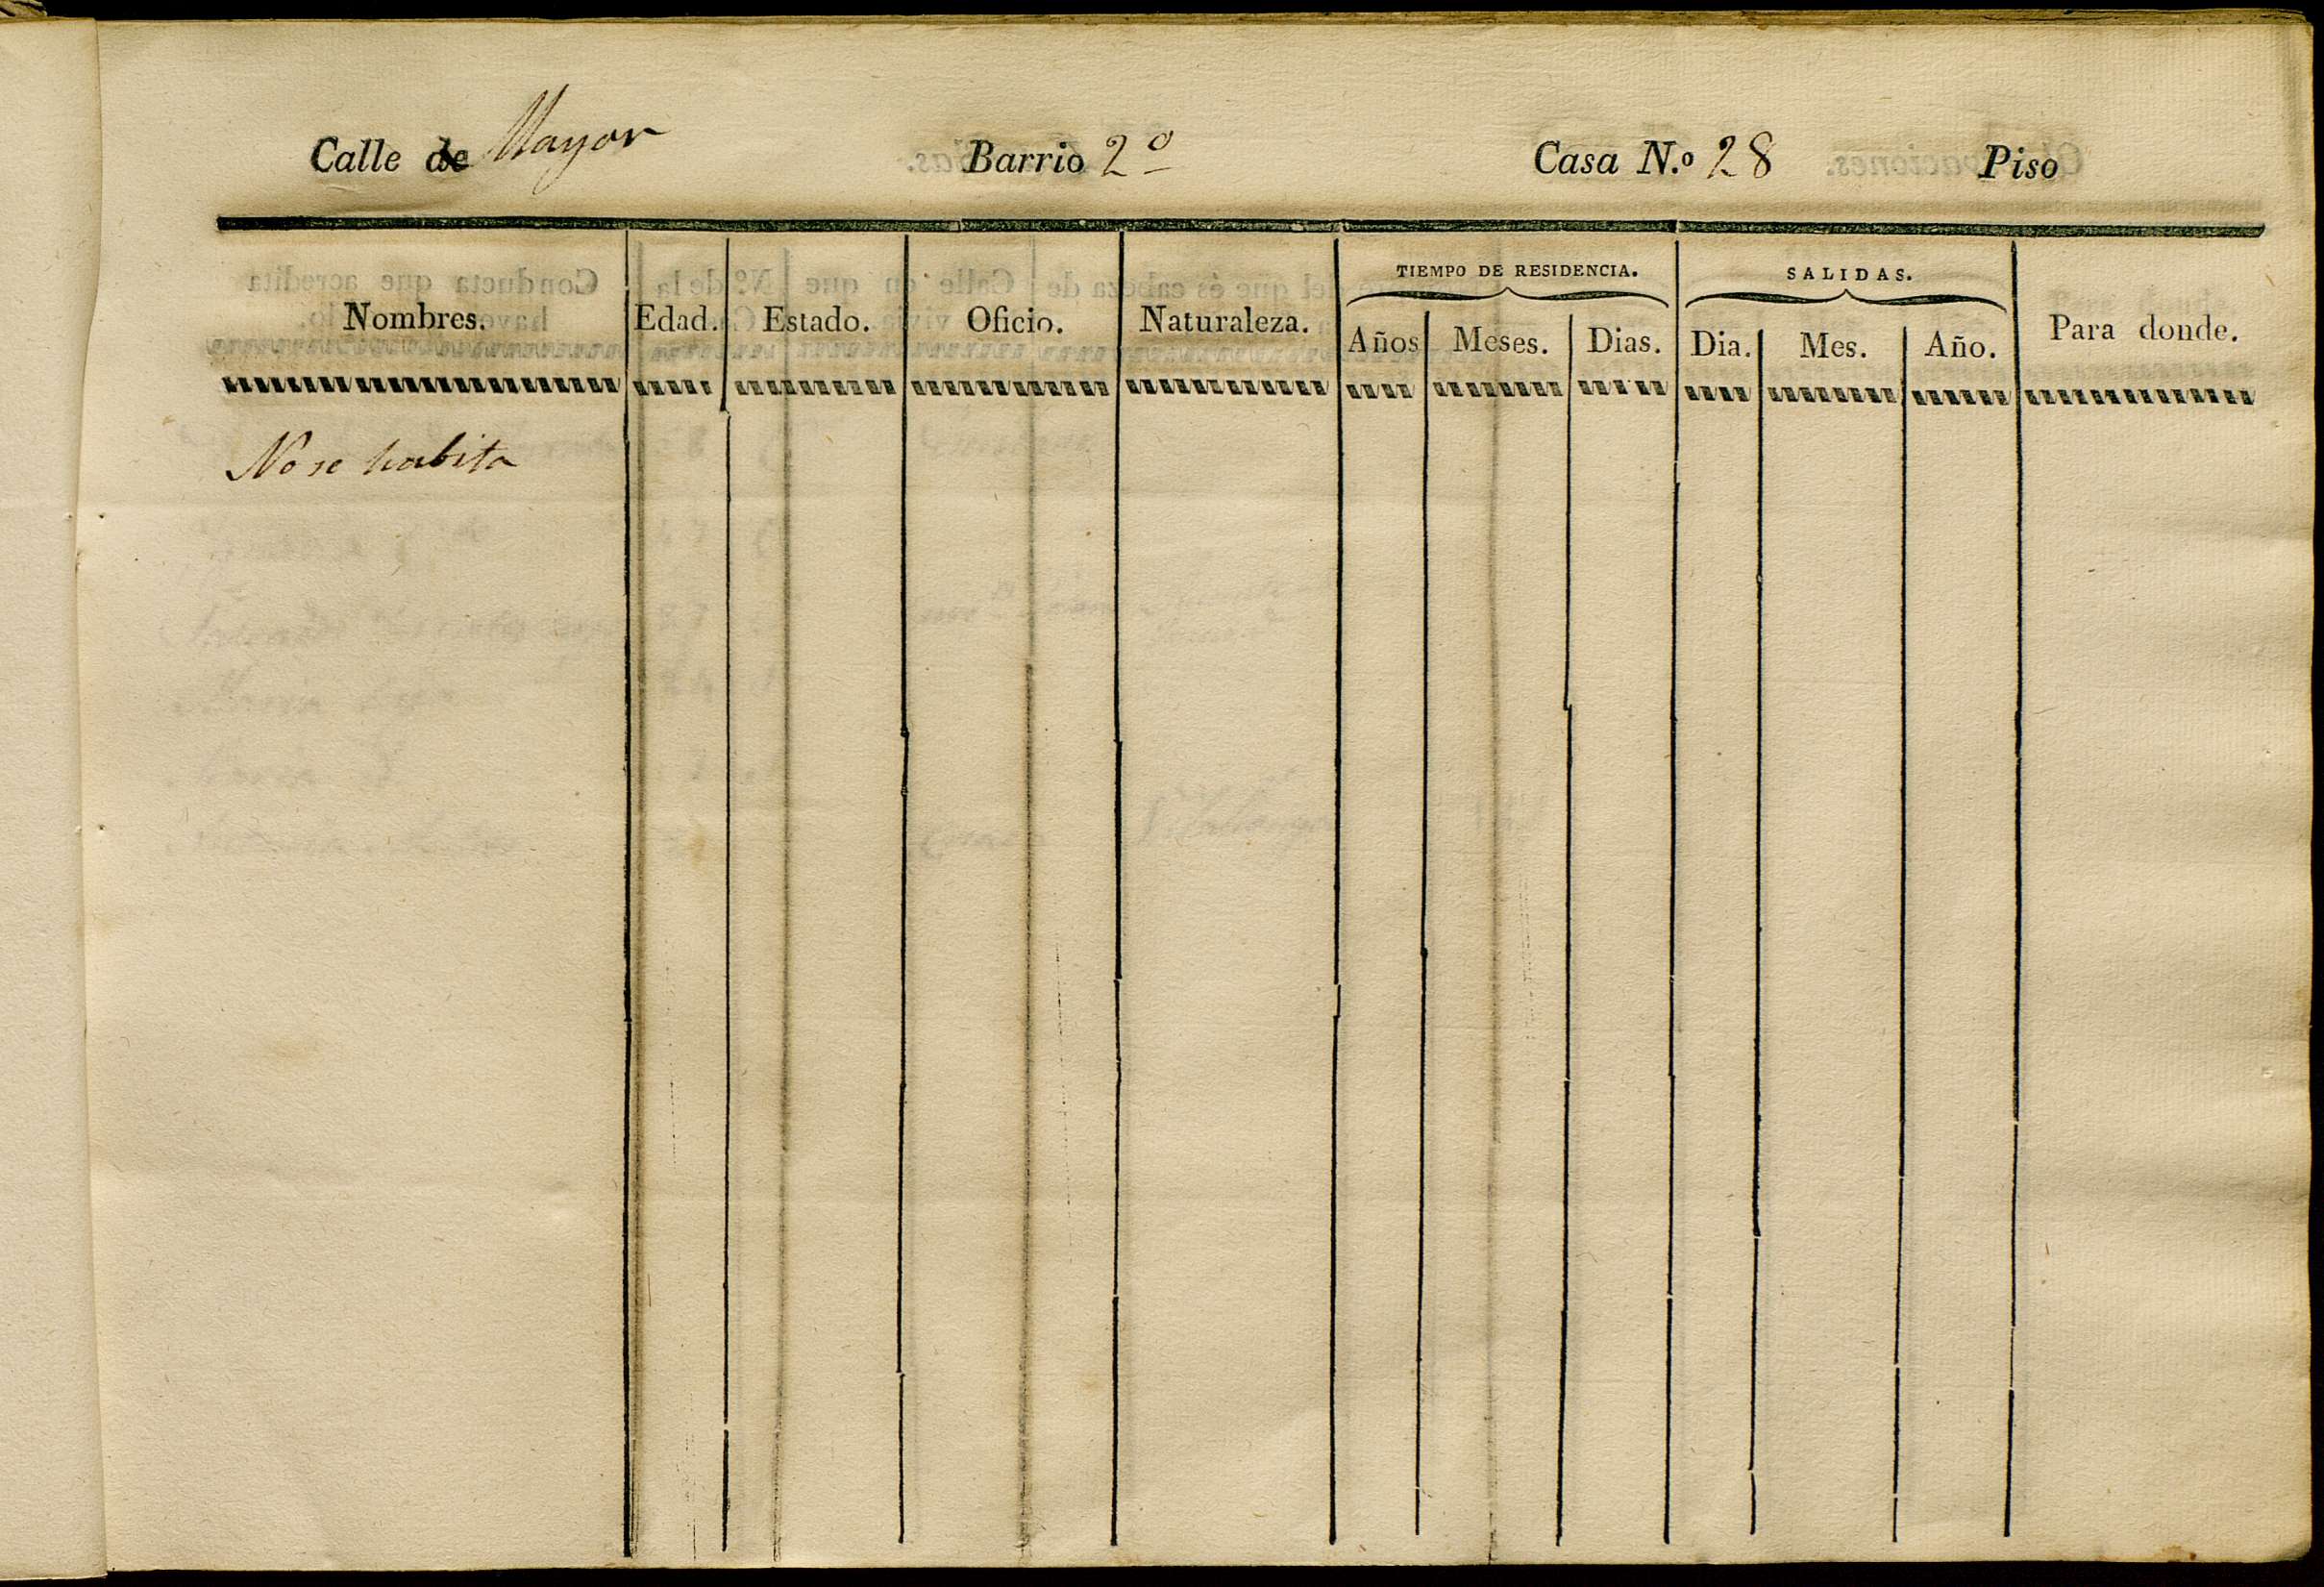 Calle de Mayor Barrio 2º Casa N.º 28 Piso
TIEMPO DE RESIDENCIA. SALIDAS.
Nombres. Edad. Estado. Oficio. Naturaleza. Años Meses. Dias. Dia. Mes. Año. Para donde.
No se habita